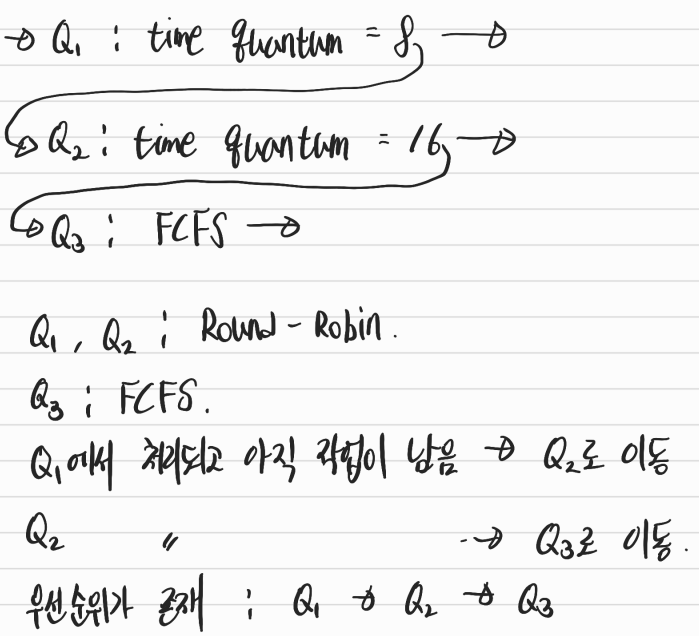 → Q₁ : time quantum = 8 →
→ Q₂ : time quantum = 16 →
→ Q₃ : FCFS →
Q₁, Q₂ : Round-Robin.
Q₃ : FCFS.
Q₁에서 처리되고 아직 작업이 남음 → Q₂로 이동
Q₂ 〃 → Q₃로 이동.
우선순위가 존재 : Q₁ → Q₂ → Q₃